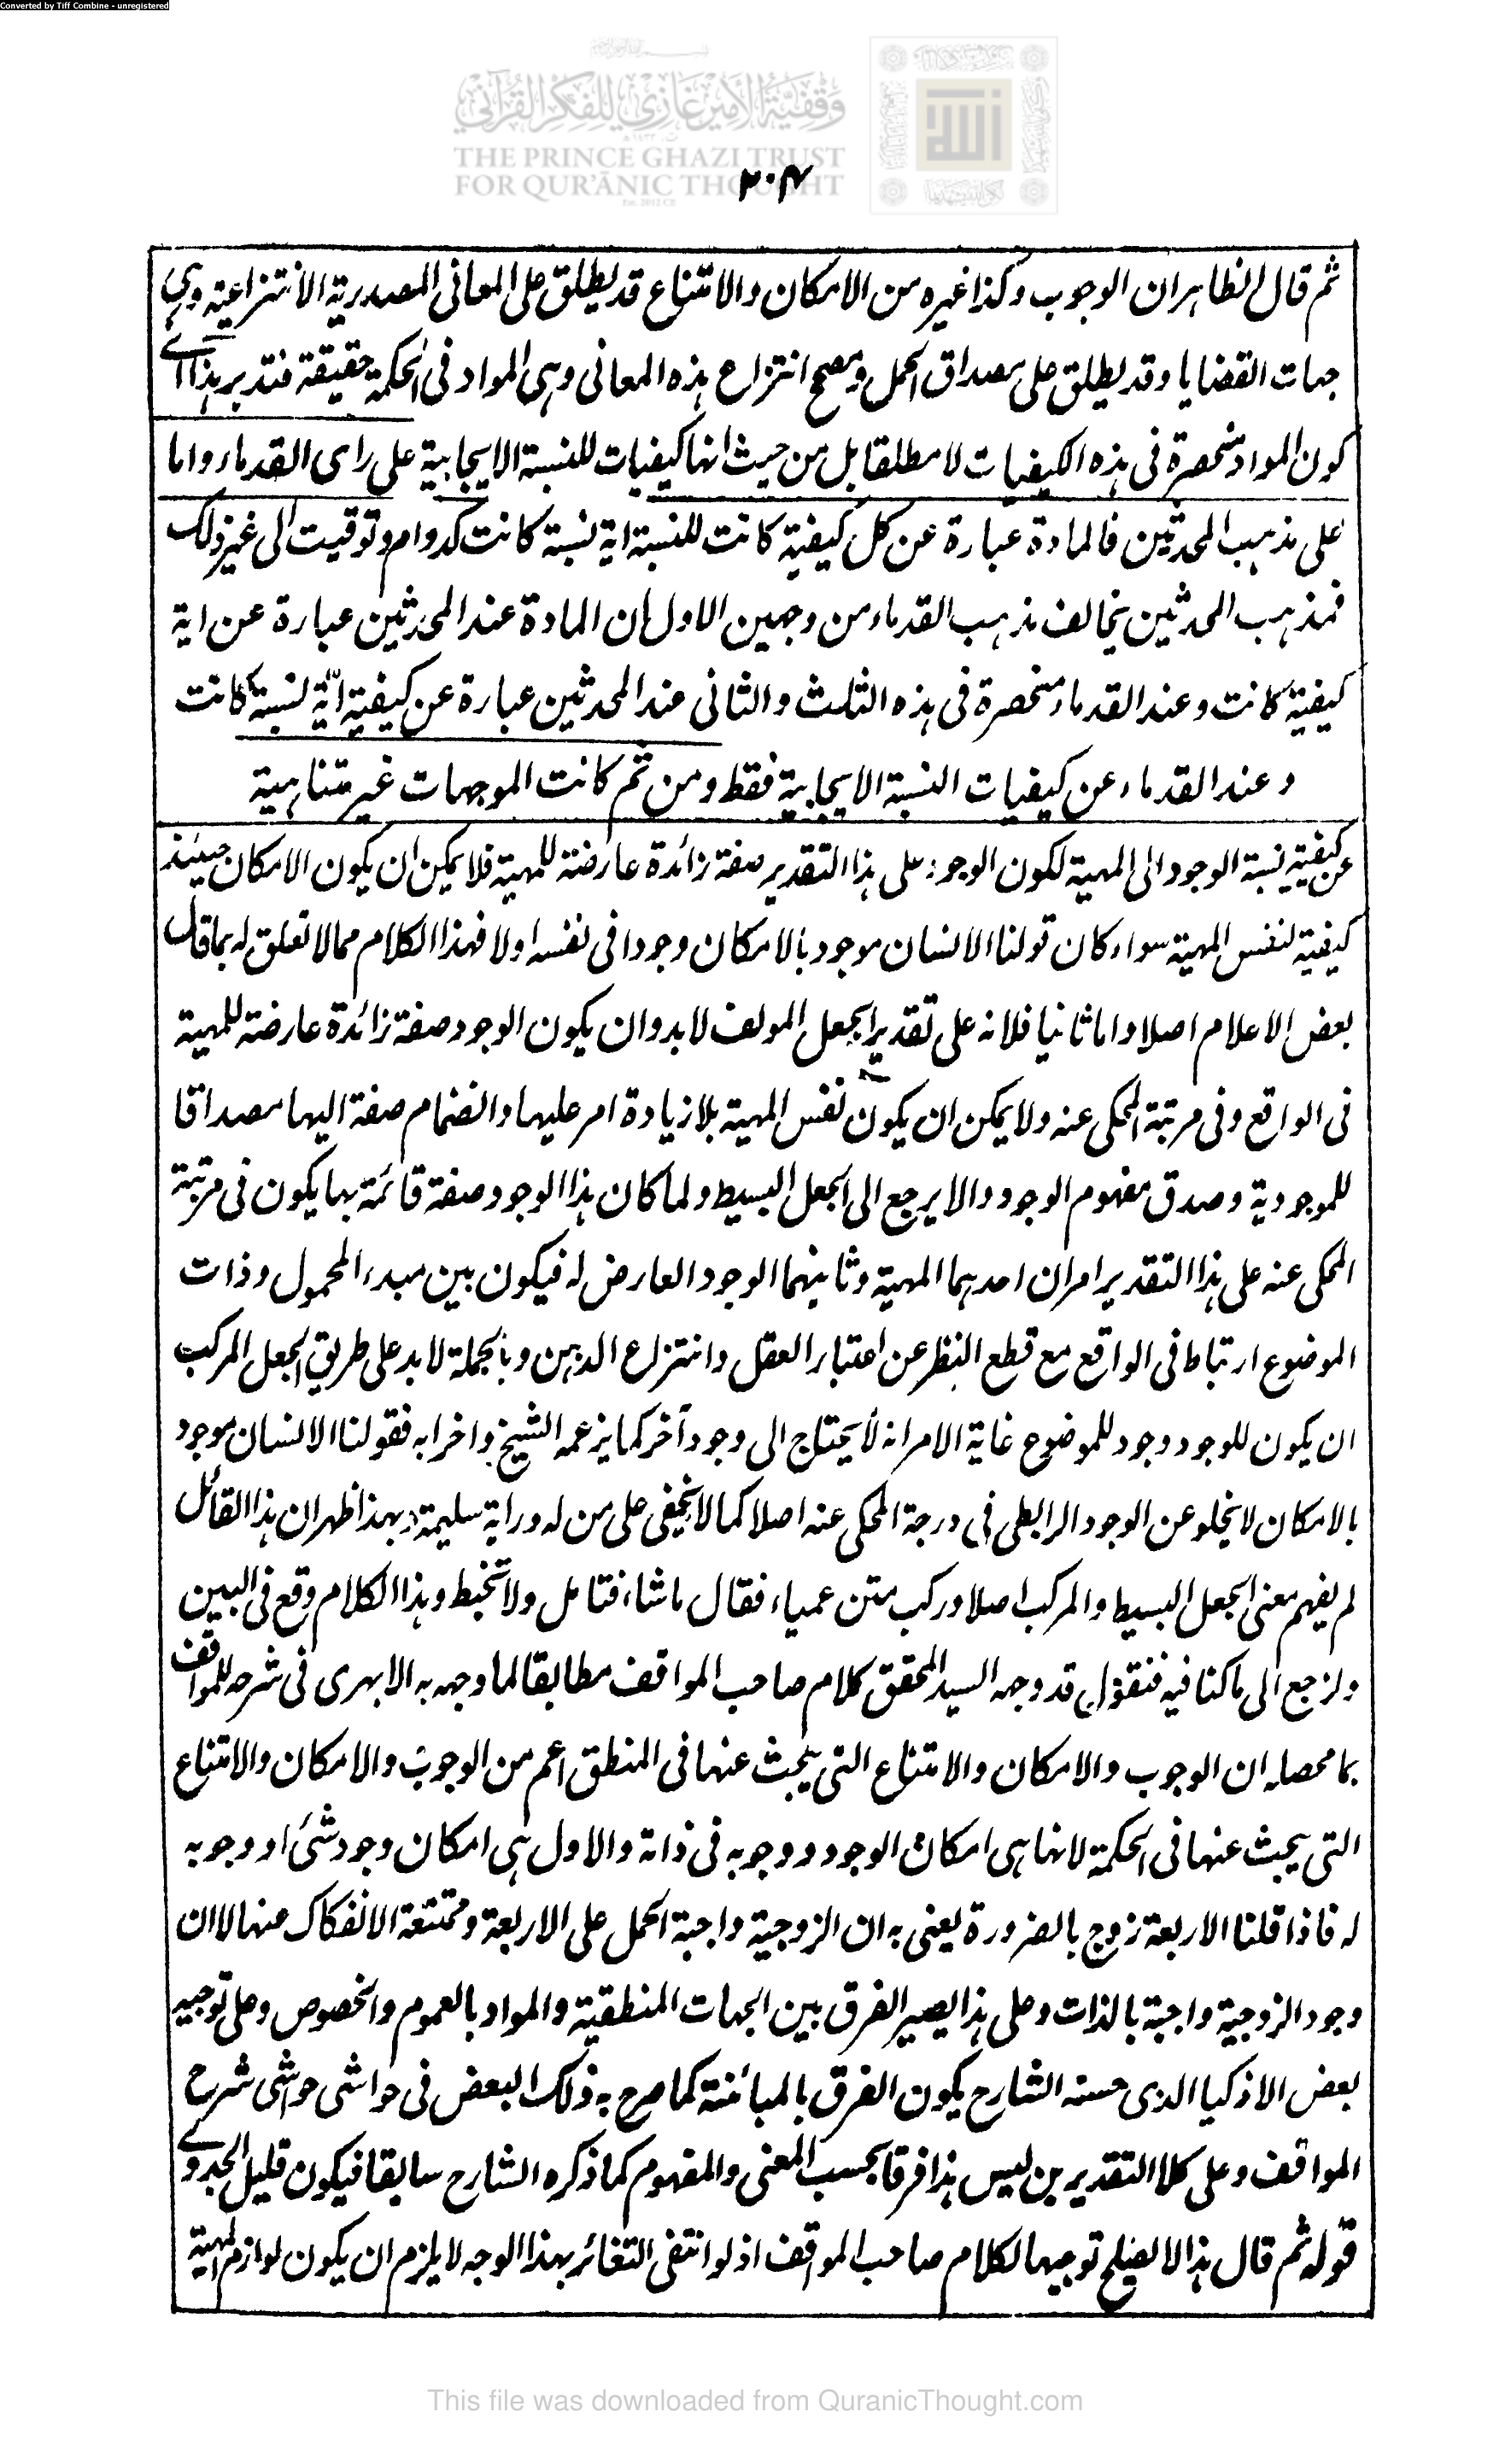 Converted by Tiff Combine - unregistered
وقفية الأمير غازي للفكر القرآني
THE PRINCE GHAZI TRUST
FOR QUR'ĀNIC THOUGHT
Est. 2012 CE
٢٠٤
ثم قال الظاهر ان الوجوب وكذا غيره من الامكان والامتناع قد يطلق على المعانى المصدرية الانتزاعية وهى
جهات القضايا وقد يطلق على مصداق الحمل ومصحح انتزاع هذه المعانى وهى المواد فى الحكمة حقيقة فتدبر هذا اے
كون المواد منحصرة فى هذه الكيفيات لا مطلقا بل من حيث انها كيفيات للنسبة الايجابية على راى القدماء واما
على مذهب المحدثين فالمادة عبارة عن كل كيفية كانت للنسبة اية نسبة كانت كدوام وتوقيت الى غير ذلك
فمذهب المحدثين يخالف مذهب القدماء من وجهين الاول ان المادة عند المحدثين عبارة عن اية
كيفية كانت وعند القدماء منحصرة فى هذه الثلث والثانى عند المحدثين عبارة عن كيفية اية نسبة كانت
وعند القدماء عن كيفيات النسبة الايجابية فقط ومن ثم كانت الموجهات غير متناهية
عن كيفية نسبة الوجود الى المهية لكون الوجود على هذا التقدير صفة زائدة عارضة للمهية فلا يمكن ان يكون الامكان حينئذ
كيفية لنفس المهية سواء كان قولنا الانسان موجود بالامكان وجودا فى نفسه اولا فهذا الكلام مما لا تعلق له بما قال
بعض الاعلام اصلا واما ثانيا فلانه على تقدير الجعل المولف لا بد وان يكون الوجود صفة زائدة عارضة للمهية
فى الواقع وفى مرتبة المحكى عنه ولا يمكن ان يكون نفس المهية بلا زيادة امر عليها وانضمام صفة اليها مصداقا
للموجودية وصدق مفهوم الوجود والا يرجع الى الجعل البسيط ولما كان هذا الوجود صفة قائمة بها يكون فى مرتبة
المحكى عنه على هذا التقدير امران احدهما المهية وثانيهما الوجود العارض له فيكون بين مبدء المحمول وذات
الموضوع ارتباط فى الواقع مع قطع النظر عن اعتبار العقل وانتزاع الذهن وبالجملة لا بد على طريق الجعل المركب
ان يكون للوجود وجود للموضوع غاية الامر انه لا يحتاج الى وجود آخر كما يزعمه الشيخ واخرابه فقولنا الانسان موجود
بالامكان لا يخلو عن الوجود الرابطى فى درجة المحكى عنه اصلا كما لا يخفى على من له دراية سليمة وبهذا ظهر ان هذا القائل
لم يفهم معنى الجعل البسيط والمركب اصلا وركب متن عمياء فقال ما شاء فتامل ولا تخبط وهذا الكلام وقع فى البين
ولنرجع الى ما كنا فيه فنقول قد وجه السيد المحقق كلام صاحب المواقف مطابقا لما وجهه به الابهرى فى شرحه للمواقف
بما محصله ان الوجوب والامكان والامتناع التى يبحث عنها فى المنطق اعم من الوجوب والامكان والامتناع
التى يبحث عنها فى الحكمة لانها هى امكان الوجود ووجوبه فى ذاته والاول هى امكان وجود شئ او وجوبه
له فاذا قلنا الاربعة زوج بالضرورة يعنى به ان الزوجية واجبة الحمل على الاربعة وممتنعة الانفكاك عنها لا ان
وجود الزوجية واجبة بالذات وعلى هذا يصير الفرق بين الجهات المنطقية والمواد بالعموم والخصوص وعلى توجيه
بعض الاذكيا الذى حسنه الشارح يكون الفرق بالمبائنة كما صرح به ذلك البعض فى حواشى حواشى شرح
المواقف وعلى كلا التقديرين ليس هذا فرقا بحسب المعنى والمفهوم كما ذكره الشارح سابقا فيكون قليل الجدوے
قوله ثم قال هذا لا يصلح توجيها لكلام صاحب المواقف اذ لو انتفى التغائر بهذا الوجه لا يلزم ان يكون لوازم المهية
This file was downloaded from QuranicThought.com